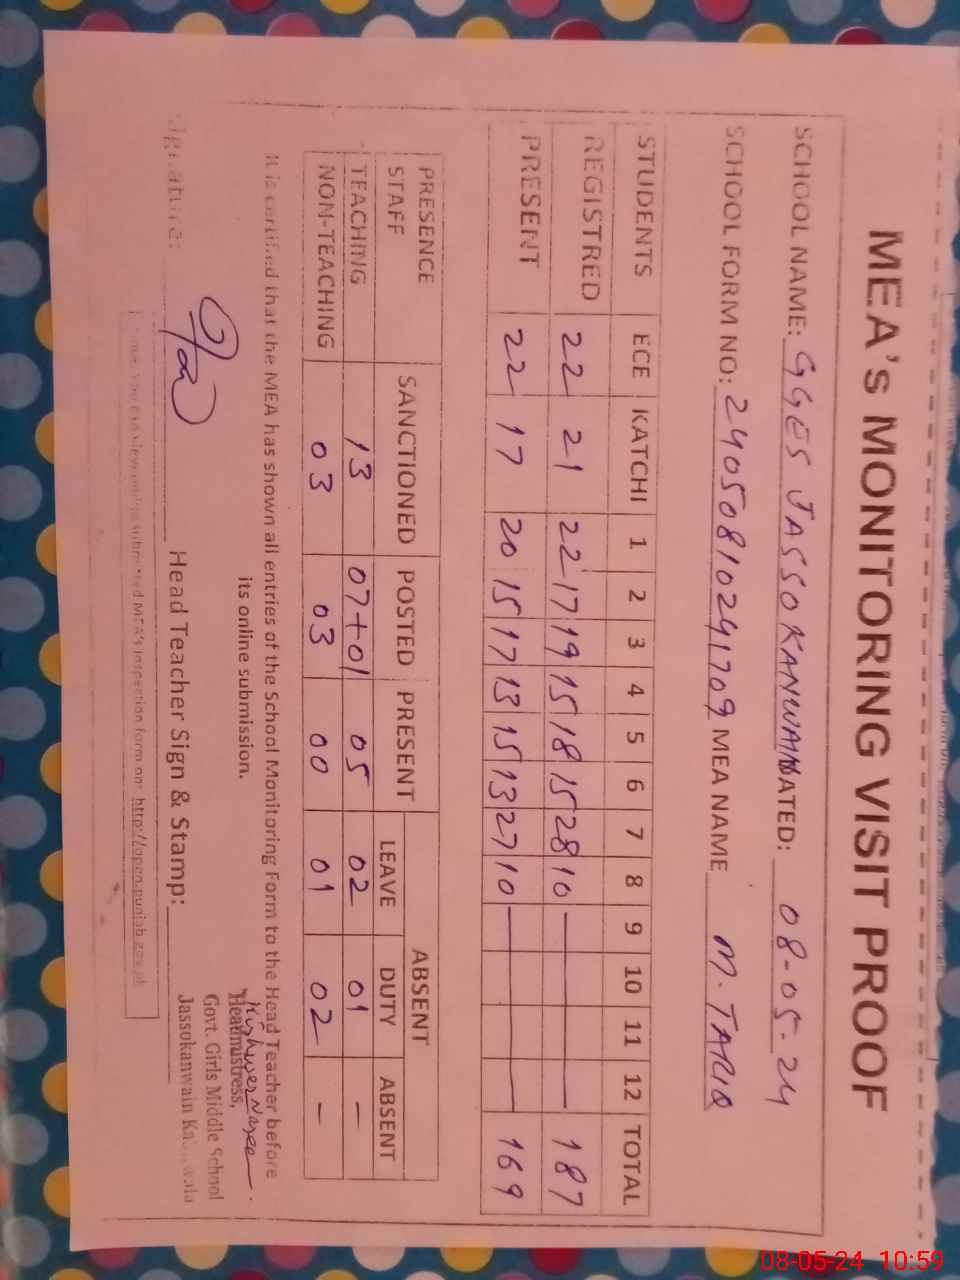 MEA's MONITORING VISIT PROOF
SCHOOL NAME: GGES JASSOKANWAIN DATED: 08-05-24
SCHOOL FORM NO: 2405081029 1709 MEA NAME M. TARIQ
STUDENTS ECE KATCHI 1 2 3 4 5 6 7 8 9 10 11 12 TOTAL
REGISTRED 22 21 22 17 19 15 18 15 28 10 — — 187
PRESENT 22 17 20 15 17 13 15 13 27 10 — — 169
PRESENCE STAFF SANCTIONED POSTED PRESENT ABSENT
LEAVE DUTY ABSENT
TEACHING 13 07+01 05 02 01 –
NON-TEACHING 03 03 00 01 02 –
It is certified that the MEA has shown all entries of the School Monitoring Form to the Head Teacher before
its online submission.
Headmistress,
Govt. Girls Middle School
Jassokanwain
Signature: Head Teacher Sign & Stamp:
submitted MEA's inspection form on: http://open.punjab.gov.pk
08-05-24 10:59